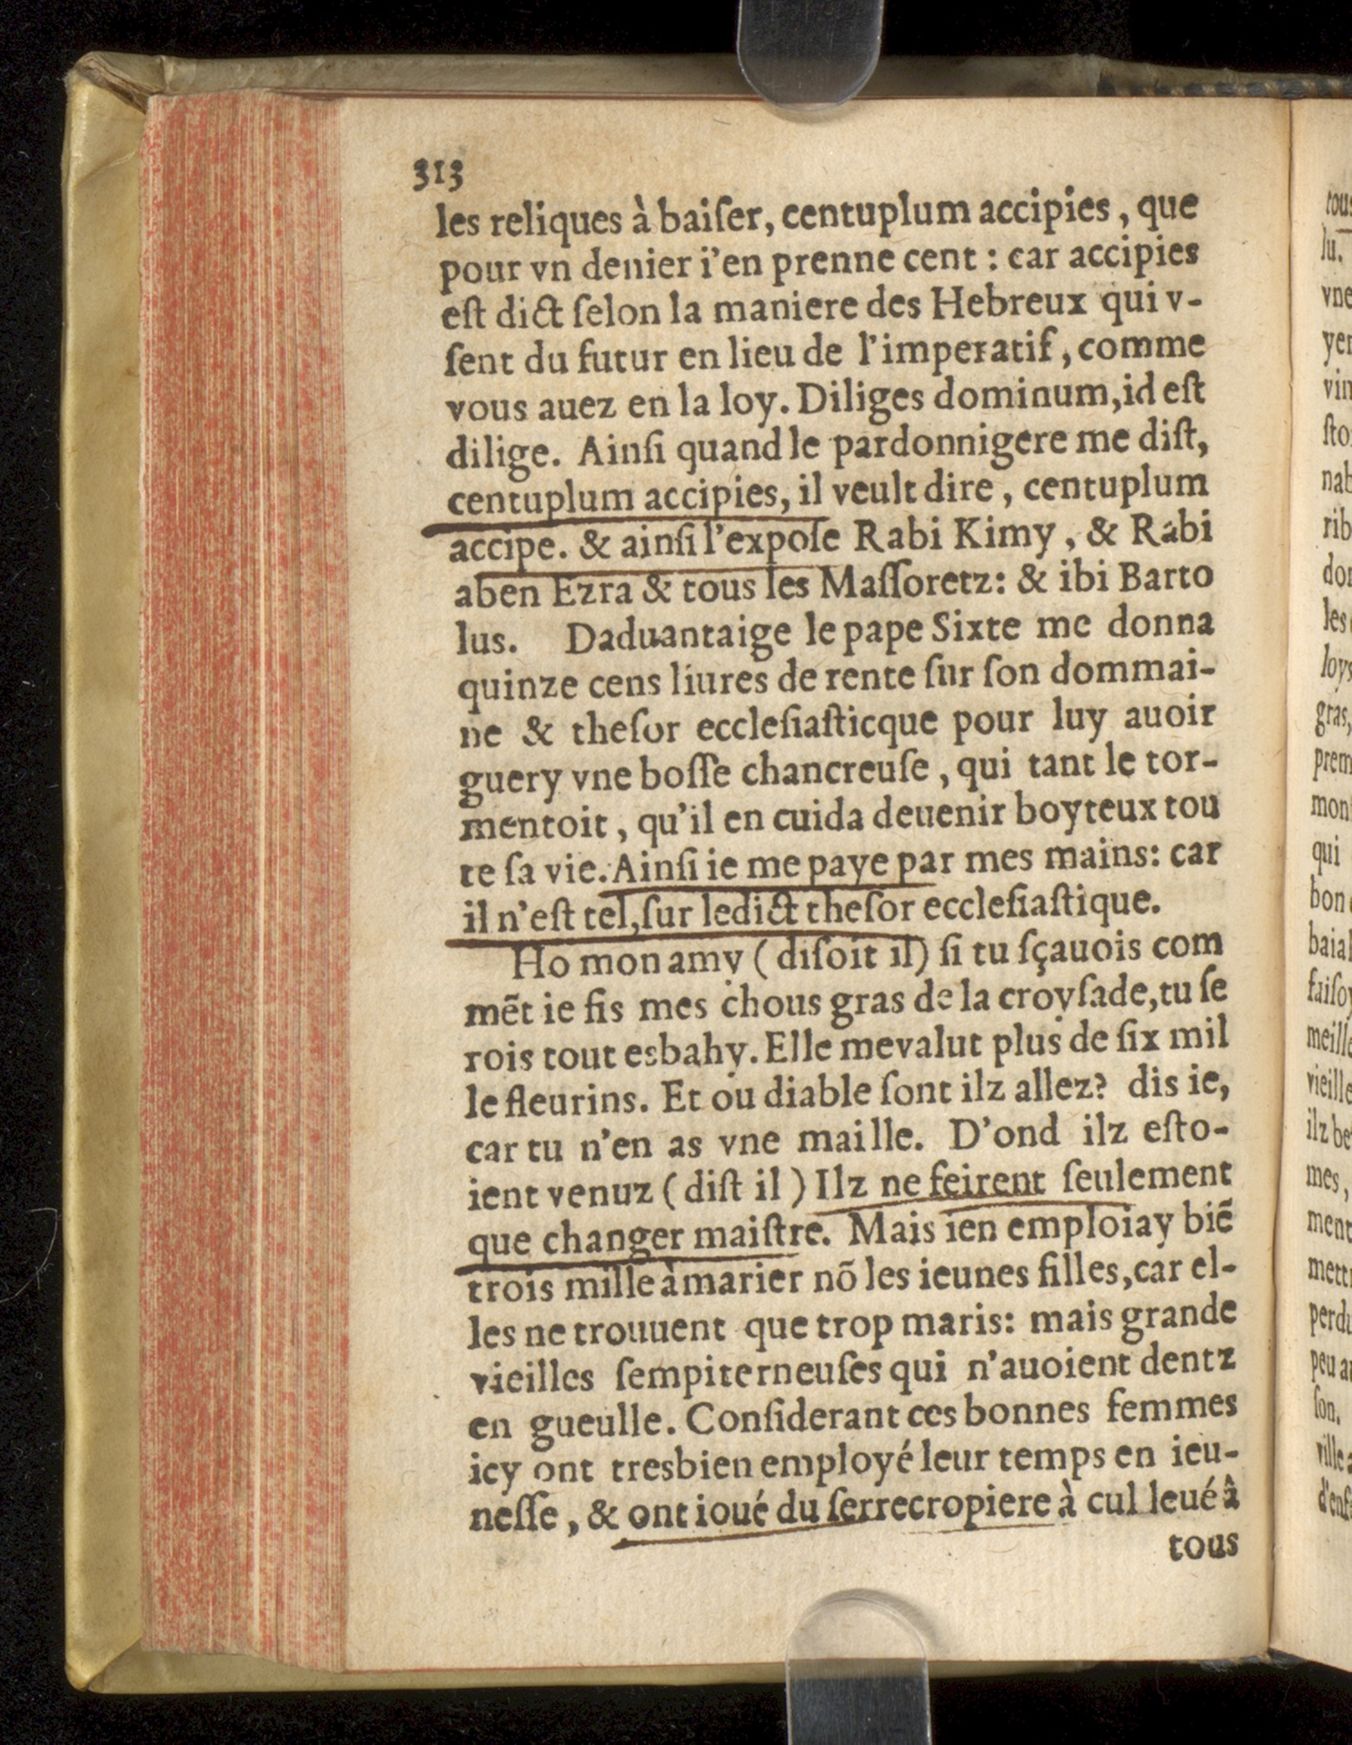 313
les reliques à baiſer, centuplum accipies, que
pour vn denier i'en prenne cent : car accipies
eſt dict ſelon la maniere des Hebreux qui v-
ſent du futur en lieu de l'imperatif, comme
vous auez en la loy. Diliges dominum, id eſt
dilige. Ainſi quand le pardonnigere me diſt,
centuplum accipies, il veult dire, centuplum
accipe. & ainſi l'expoſe Rabi Kimy, & Rabi
aben Ezra & tous les Maſſoretz: & ibi Barto
lus. Daduantaige le pape Sixte me donna
quinze cens liures de rente ſur ſon dommai-
ne & theſor eccleſiaſticque pour luy auoir
guery vne boſſe chancreuſe, qui tant le tor-
mentoit, qu'il en cuida deuenir boyteux tou
te ſa vie. Ainſi ie me paye par mes mains: car
il n'eſt tel, ſur ledict theſor eccleſiaſtique.
Ho mon amy (diſoit il) ſi tu ſçauois com
mẽt ie fis mes chous gras de la croyſade, tu ſe
rois tout esbahy. Elle mevalut plus de ſix mil
le fleurins. Et ou diable ſont ilz allez? dis ie,
car tu n'en as vne maille. D'ond ilz eſto-
ient venuz (diſt il) Ilz ne feirent ſeulement
que changer maiſtre. Mais ien emploiay biẽ
trois mille à marier nõ les ieunes filles, car el-
les ne trouuent que trop maris: mais grande
vieilles ſempiterneuſes qui n'auoient dentz
en gueulle. Conſiderant ces bonnes femmes
icy ont tresbien employé leur temps en ieu-
neſſe, & ont ioué du ſerrecropiere à cul leué â
tous